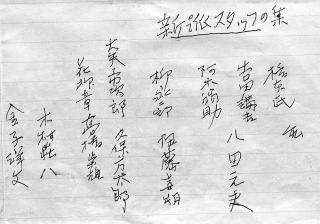 新派スタッフの集
吉田謙吉 八田元夫
阿木翁助
柳永二郎 伊藤喜朔
大矢市次郎 久保田万太郎
花柳章太郎
木村荘八
金子洋文